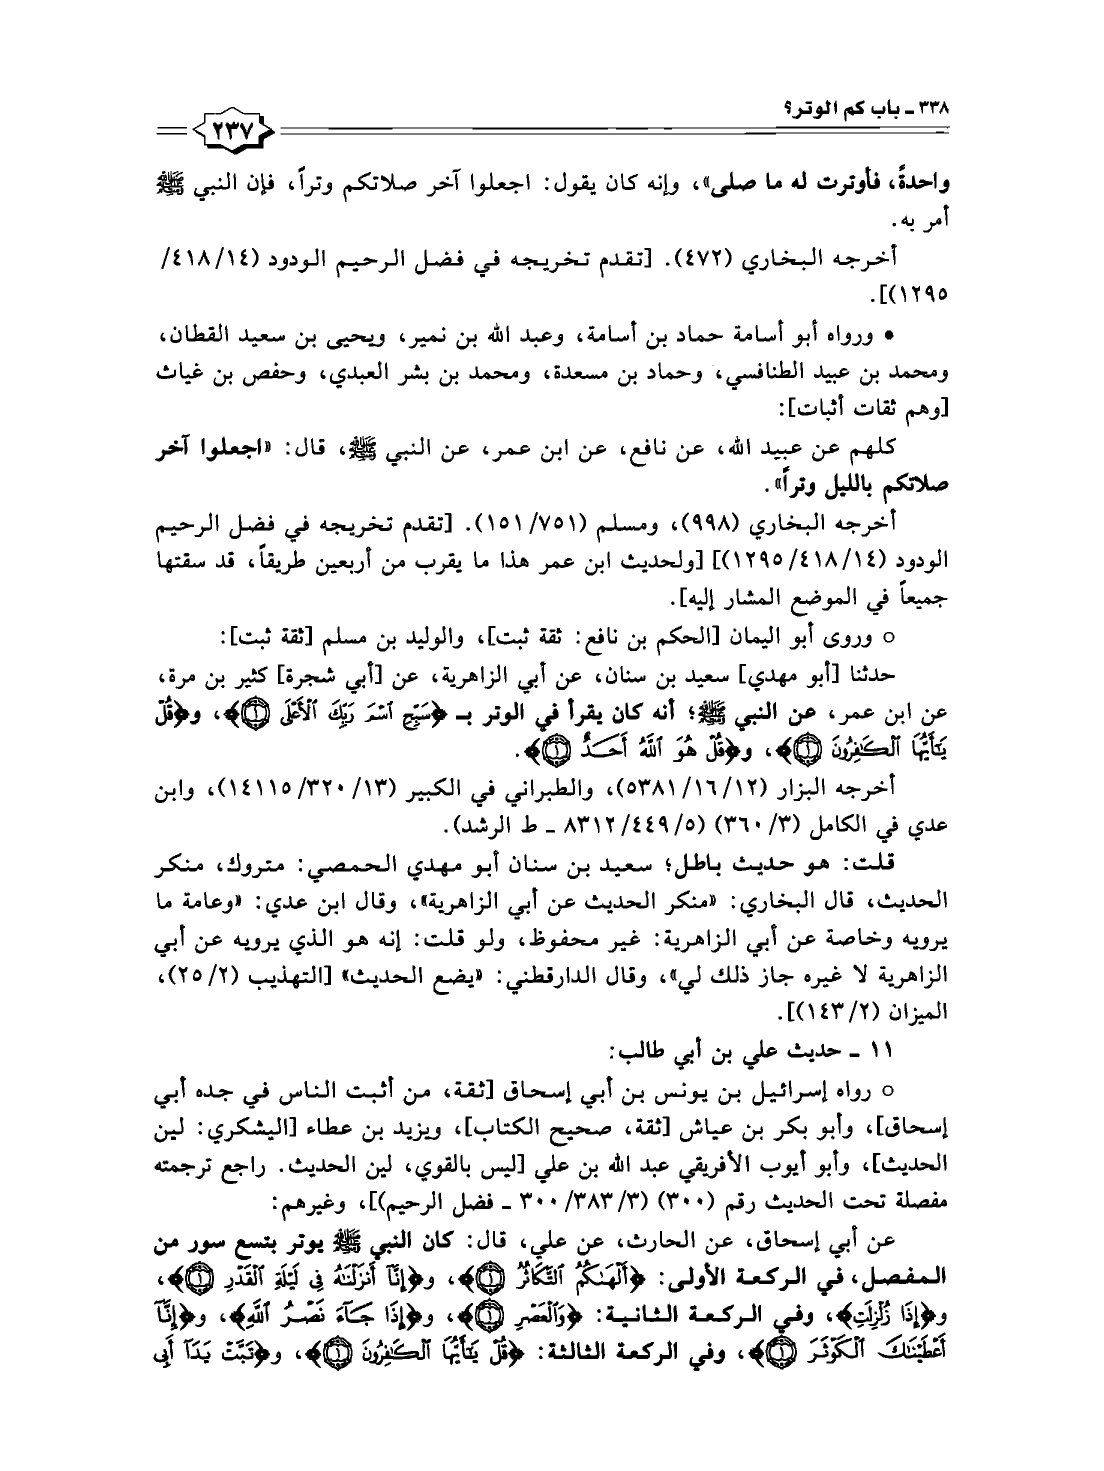 ٣٣٨ ـ باب كم الوتر؟
٢٣٧
واحدةً، فأوترت له ما صلى»، وإنه كان يقول: اجعلوا آخر صلاتكم وتراً، فإن النبي ﷺ
أمر به.
أخرجه البخاري (٤٧٢). [تقدم تخريجه في فضل الرحيم الودود (٤١٨/١٤/
١٢٩٥)].
• ورواه أبو أسامة حماد بن أسامة، وعبد الله بن نمير، ويحيى بن سعيد القطان،
ومحمد بن عبيد الطنافسي، وحماد بن مسعدة، ومحمد بن بشر العبدي، وحفص بن غياث
[وهم ثقات أثبات]:
كلهم عن عبيد الله، عن نافع، عن ابن عمر، عن النبي ﷺ، قال: «اجعلوا آخر
صلاتكم بالليل وتراً».
أخرجه البخاري (٩٩٨)، ومسلم (١٥١/٧٥١). [تقدم تخريجه في فضل الرحيم
الودود (١٢٩٥/٤١٨/١٤)] [ولحديث ابن عمر هذا ما يقرب من أربعين طريقاً، قد سقتها
جميعاً في الموضع المشار إليه].
○ وروى أبو اليمان [الحكم بن نافع: ثقة ثبت]، والوليد بن مسلم [ثقة ثبت]:
حدثنا [أبو مهدي] سعيد بن سنان، عن أبي الزاهرية، عن [أبي شجرة] كثير بن مرة،
عن ابن عمر، عن النبي ﷺ؛ أنه كان يقرأ في الوتر بـ ﴿سَبِّحِ ٱسْمَ رَبِّكَ ٱلْأَعْلَى ۝١﴾، و﴿قُلْ
يَٰٓأَيُّهَا ٱلْكَٰفِرُونَ ۝١﴾، و﴿قُلْ هُوَ ٱللَّهُ أَحَدٌ ۝١﴾.
أخرجه البزار (٥٣٨١/١٦/١٢)، والطبراني في الكبير (١٤١١٥/٣٢٠/١٣)، وابن
عدي في الكامل (٣٦٠/٣) (٨٣١٢/٤٤٩/٥ ـ ط الرشد).
قلت: هو حديث باطل؛ سعيد بن سنان أبو مهدي الحمصي: متروك، منكر
الحديث، قال البخاري: «منكر الحديث عن أبي الزاهرية»، وقال ابن عدي: «وعامة ما
يرويه وخاصة عن أبي الزاهرية: غير محفوظ، ولو قلت: إنه هو الذي يرويه عن أبي
الزاهرية لا غيره جاز ذلك لي»، وقال الدارقطني: «يضع الحديث» [التهذيب (٢٥/٢)،
الميزان (١٤٣/٢)].
١١ ـ حديث علي بن أبي طالب:
○ رواه إسرائيل بن يونس بن أبي إسحاق [ثقة، من أثبت الناس في جده أبي
إسحاق]، وأبو بكر بن عياش [ثقة، صحيح الكتاب]، ويزيد بن عطاء [اليشكري: لين
الحديث]، وأبو أيوب الأفريقي عبد الله بن علي [ليس بالقوي، لين الحديث. راجع ترجمته
مفصلة تحت الحديث رقم (٣٠٠) (٣٠٠/٣٨٣/٣ ـ فضل الرحيم)]، وغيرهم:
عن أبي إسحاق، عن الحارث، عن علي، قال: كان النبي ﷺ يوتر بتسع سور من
المفصل، في الركعة الأولى: ﴿أَلْهَىٰكُمُ ٱلتَّكَاثُرُ ۝١﴾، و﴿إِنَّآ أَنزَلْنَٰهُ فِى لَيْلَةِ ٱلْقَدْرِ ۝١﴾،
و﴿إِذَا زُلْزِلَتِ﴾، وفي الركعة الثانية: ﴿وَٱلْعَصْرِ ۝١﴾، و﴿إِذَا جَآءَ نَصْرُ ٱللَّهِ﴾، و﴿إِنَّآ
أَعْطَيْنَٰكَ ٱلْكَوْثَرَ ۝١﴾، وفي الركعة الثالثة: ﴿قُلْ يَٰٓأَيُّهَا ٱلْكَٰفِرُونَ ۝١﴾، و﴿تَبَّتْ يَدَآ أَبِى